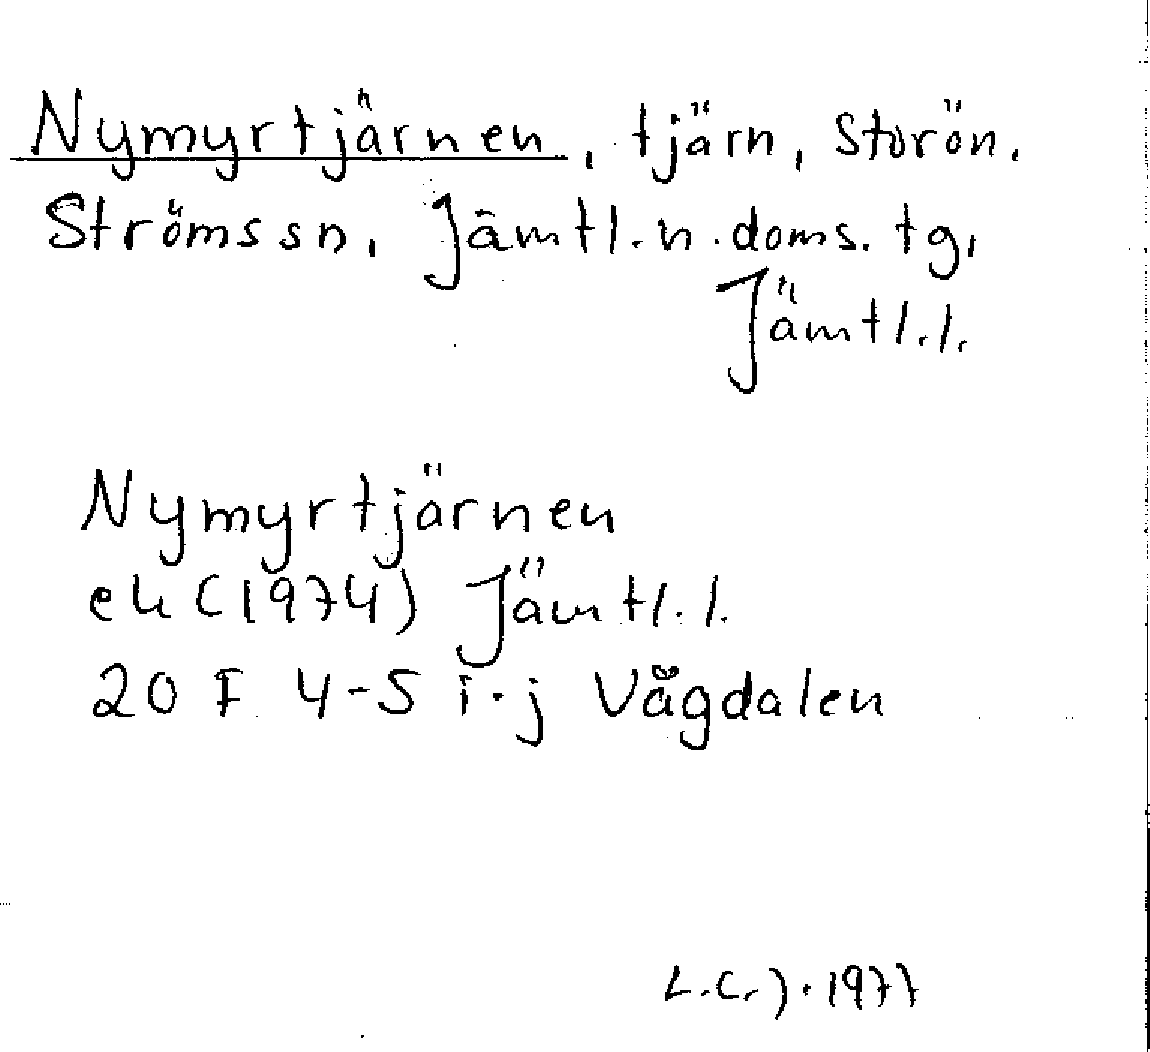 Nymyrtjärnen, tjärn, Storön,
Ströms sn, Jämtl. n. doms. tg,
Jämtl. l.
Nymyrtjärnen
ek (1974) Jämtl. l.
20 F 4-5 i-j Vågdalen
L.C.J. 1977